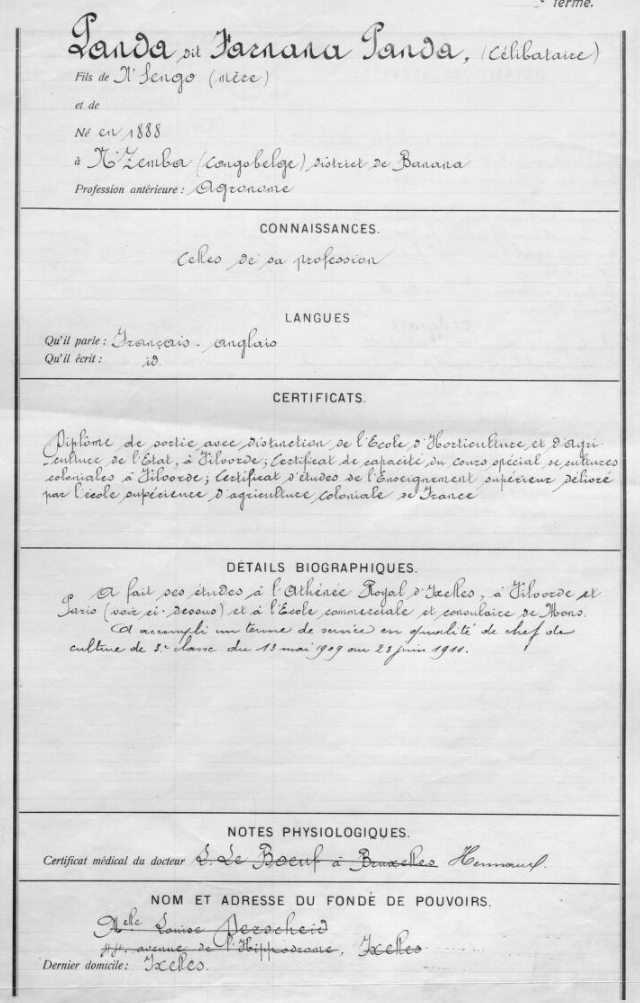 terme.
Panda dit Farnana Panda, (Célibataire)
Fils de N'Sengo (mère)
et de
Né en 1888
à N'Zemba (Congo belge) district de Banana
Profession antérieure : Agronome
CONNAISSANCES.
Celles de sa profession
LANGUES
Qu'il parle : Français. anglais
Qu'il écrit : id
CERTIFICATS.
Diplôme de sortie avec distinction de l'Ecole d'Horticulture et d'Agri-
culture de l'Etat, à Vilvorde; Certificat de capacité du cours spécial de cultures
coloniales à Vilvorde; Certificat d'études de l'Enseignement supérieur délivré
par l'école supérieure d'agriculture coloniale de France
DÉTAILS BIOGRAPHIQUES.
A fait ses études à l'Athénée Royal d'Ixelles, à Vilvorde et
Paris (voir ci-dessus) et à l'Ecole commerciale et consulaire de Mons.
A accompli un terme de service en qualité de chef de
culture de 3e classe du 13 mai 1909 au 23 juin 1911.
NOTES PHYSIOLOGIQUES.
Certificat médical du docteur L. Le Boeuf à Bruxelles
NOM ET ADRESSE DU FONDÉ DE POUVOIRS.
Melle Louise Derscheid
avenue de l'Hippodrome, Ixelles
Dernier domicile : Ixelles.